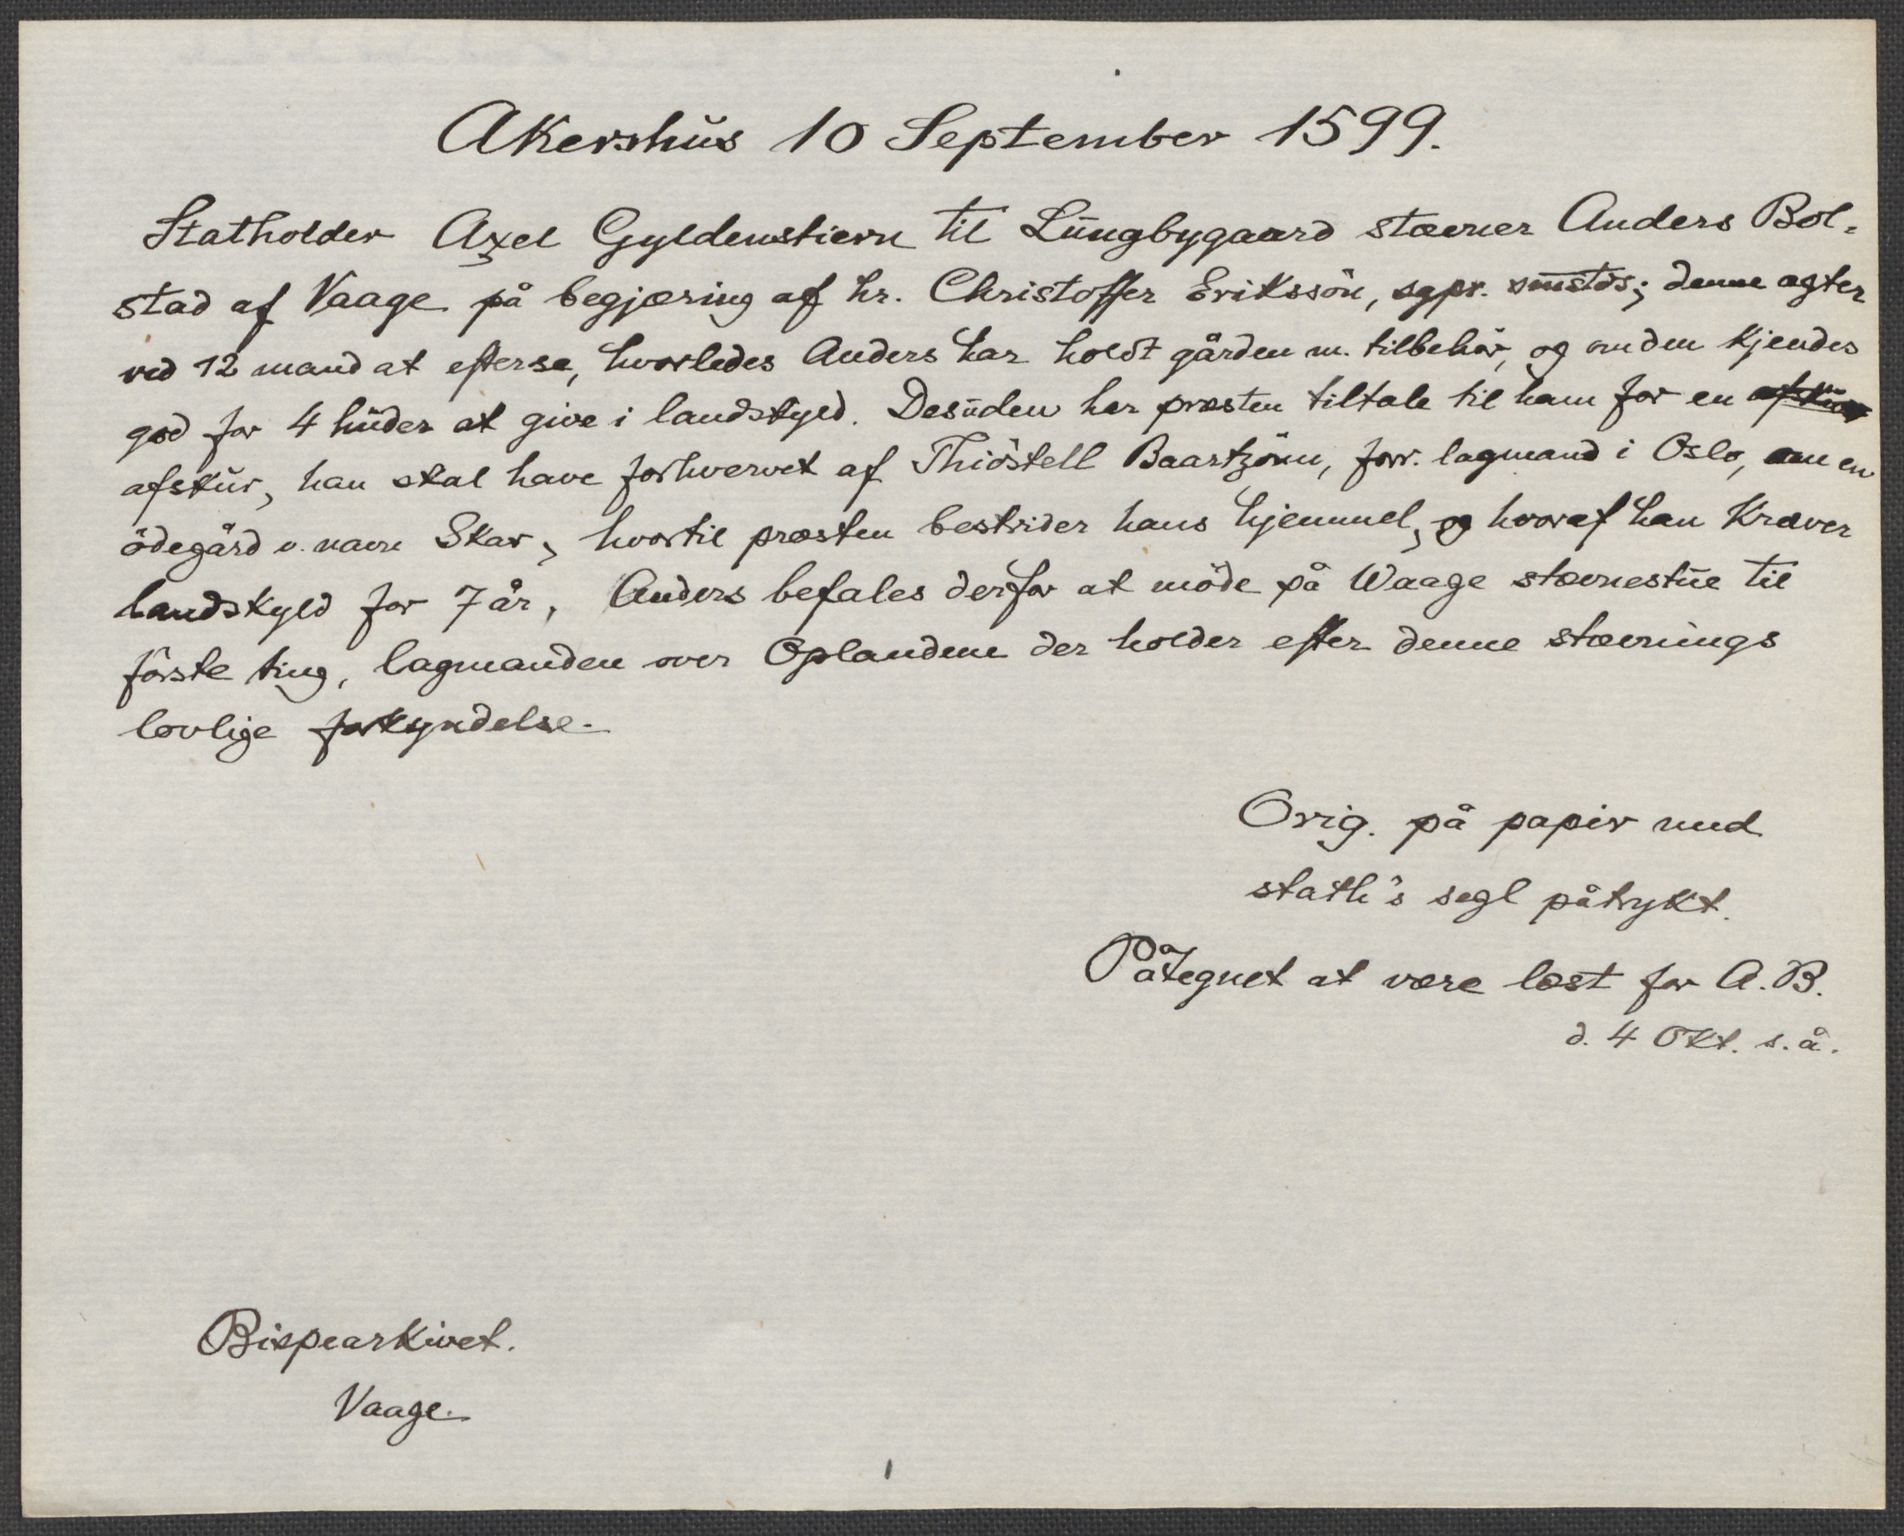 Akershus 10 September 1599.
Statholder Axel Gyldenstiern til Lungbygaard stævner Anders Bol-
stad af Vaage på begjæring af hr. Christoffer Erikssön, sgpr. smstds; denne agter
ved 12 mand at efterse, hvorledes Anders har holdt gården m. tilbehör, og om den kjendes
god for 4 huder at give i landskyld. Desuden har præsten tiltale til ham for en afskur
afskur, han skal have forhvervet af Thiöstell Baartzönn, forr. lagmand i Oslo, om en
ödegård v. navn Skar, hvortil præsten bestrider hans hjemmel, og hvoraf han kræver
landskyld for 7 år, Anders befales derfor at möde på Waage stævnestue til
förste ting, lagmanden over Oplandene der holder efter denne stævnings
lovlige forkyndelse.
Orig. på papir med
stath's segl påtrykt.
Påtegnet at være læst for A. B.
d. 4 Okt. s. å.
Bispearkivet.
Vaage.